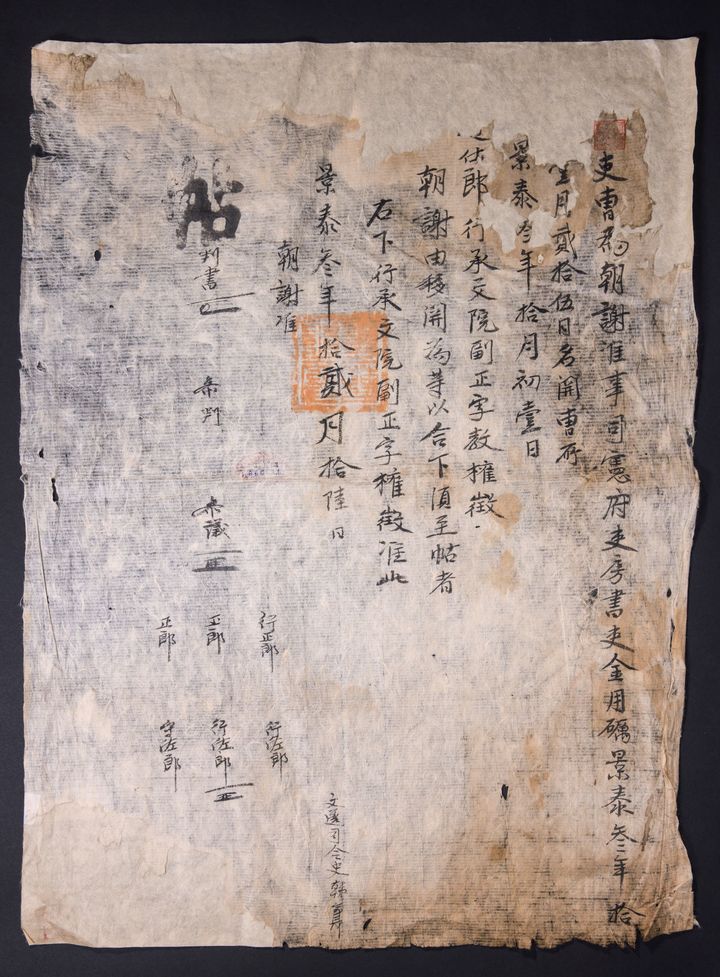 吏曹為朝謝准事司憲府吏房書吏金用礪景泰叄年拾
壹月貳拾伍日名關曹所
景泰叄年拾月初壹日
仕郎行承文院副正字教權徵
朝謝由移關為等以合下須至帖者
右下行承文院副正字權徵准此
景泰叄年拾貳月拾陸日
朝謝准
帖
判書
叅判
叅議
行正郎
正郎
正郎
行佐郎
行佐郎
守佐郎
文選司令史韓